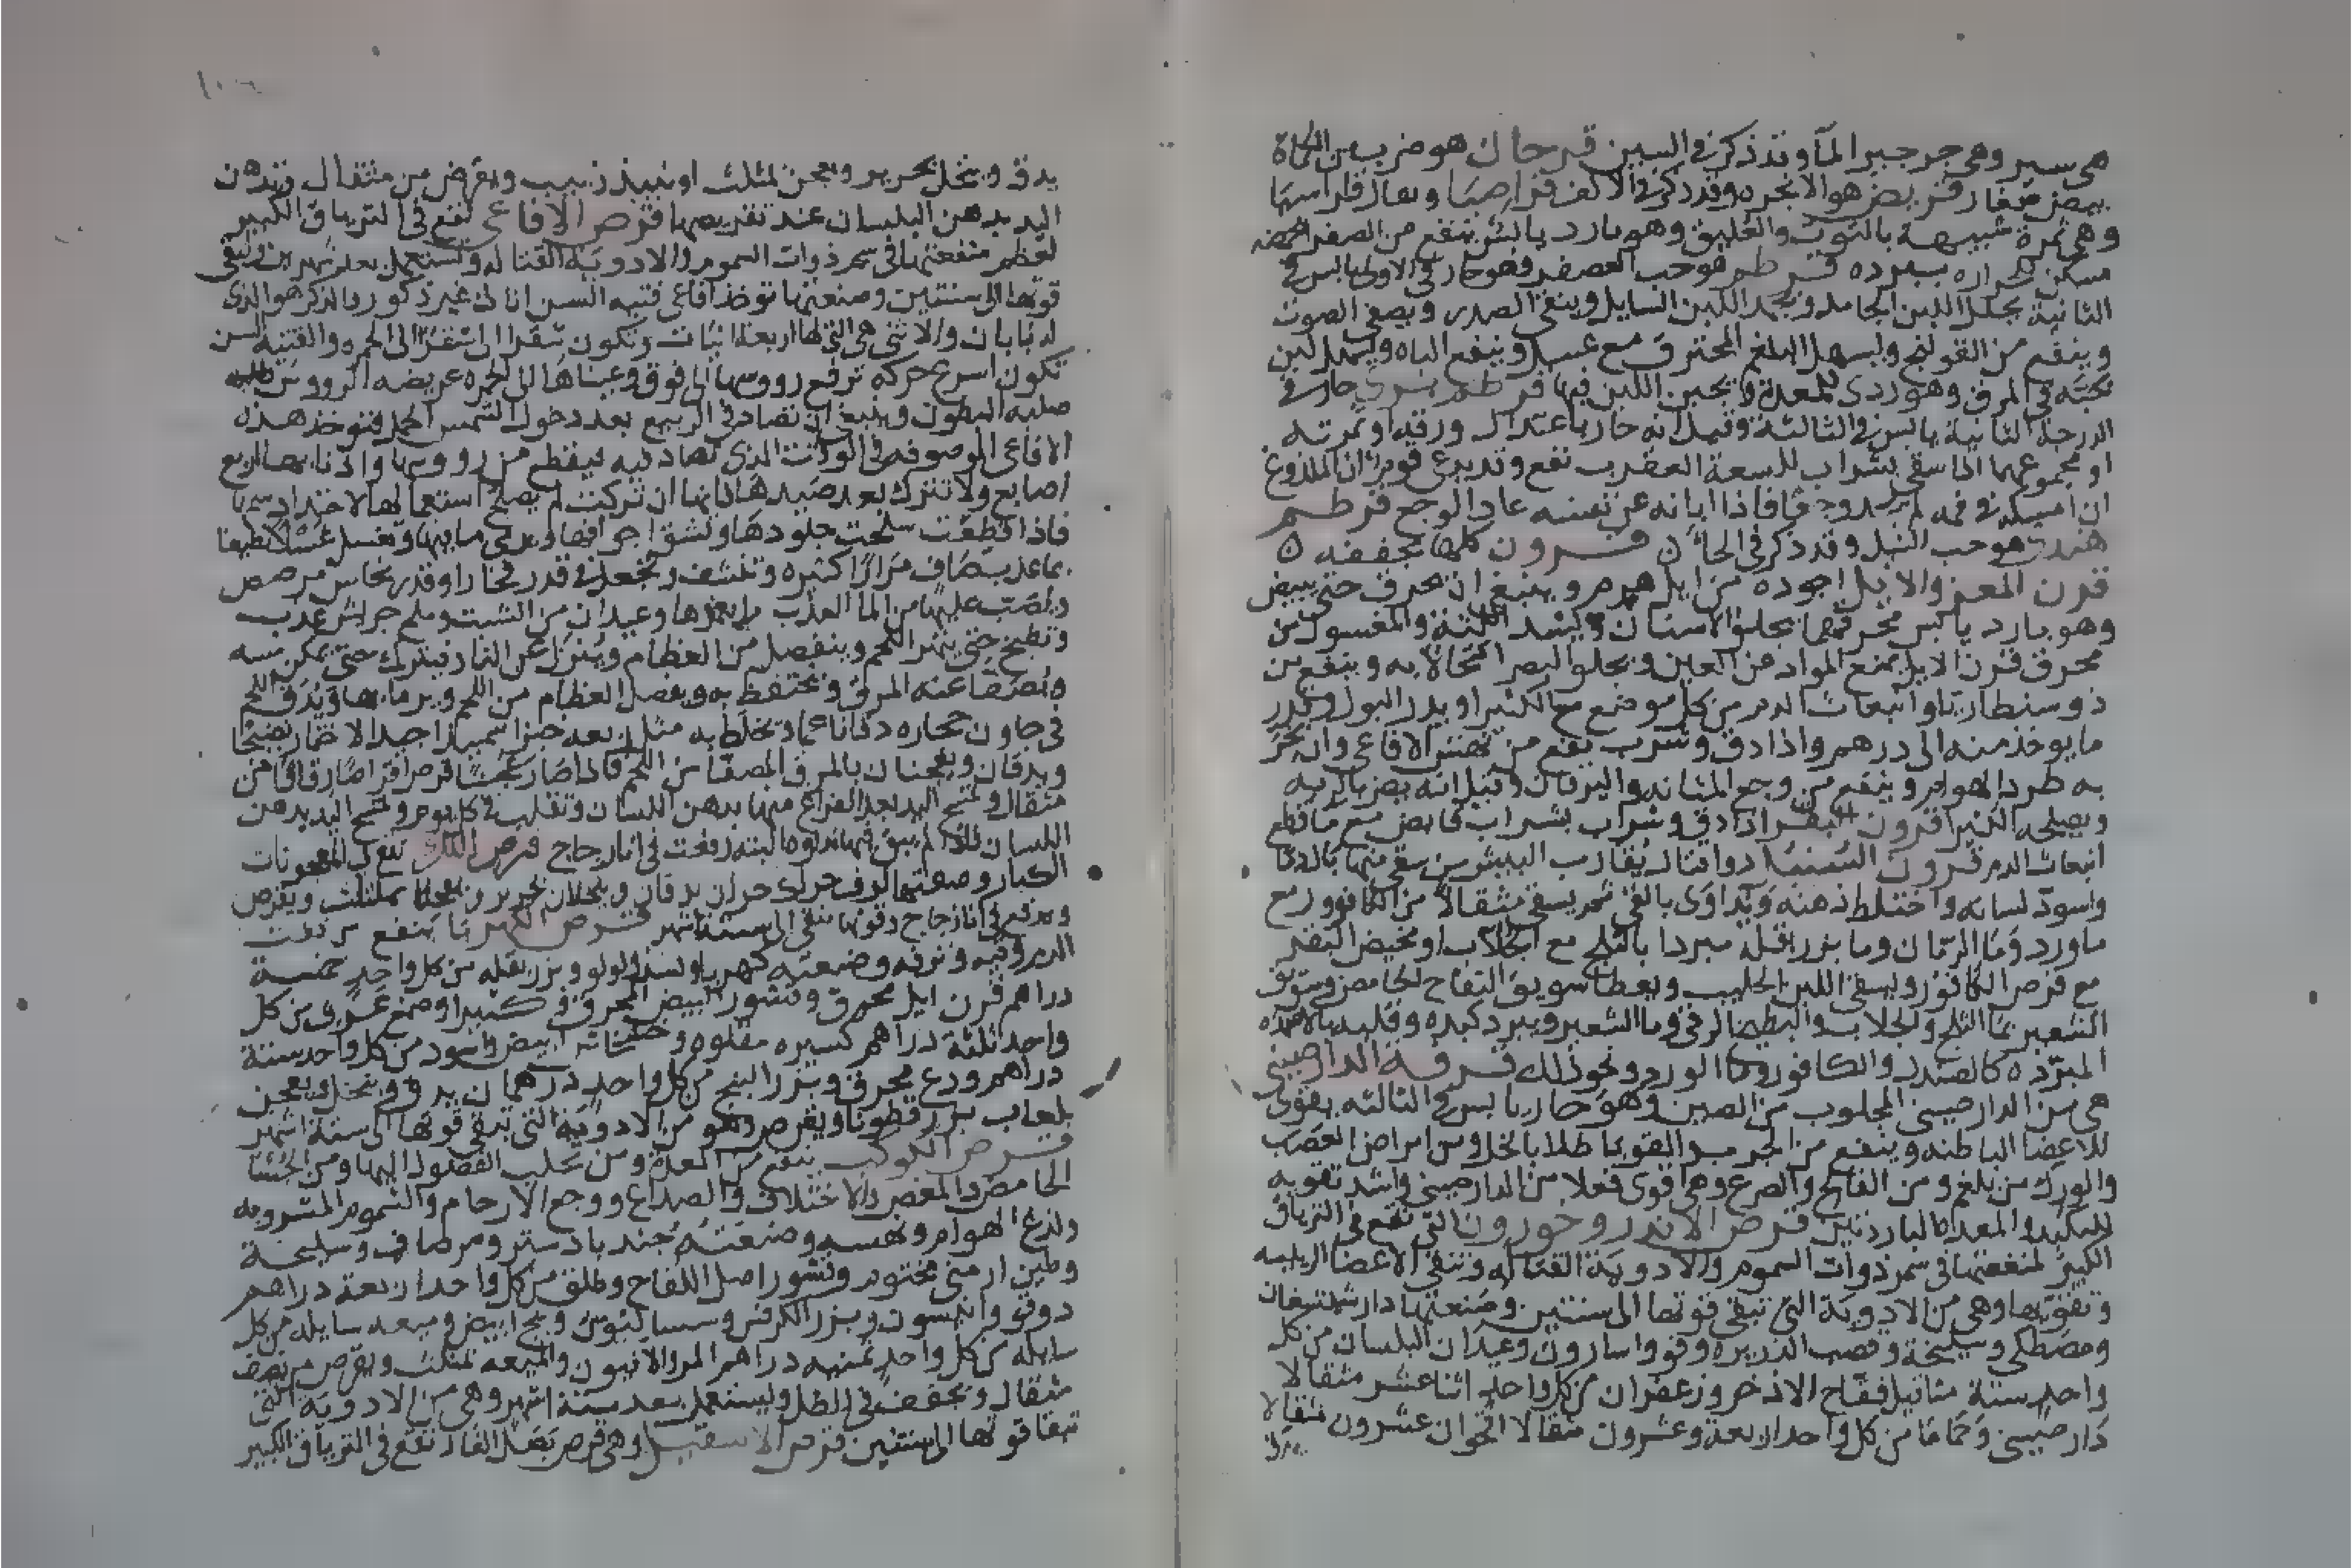 هى سير وهى جرجير المآ وقد ذكر فى السين قرحان هو ضرب من الكماة
بيض صغار قريص هو الانجره وقد ذكر فى الالف قراصيا ويقال قراسيا
وهى ثمرة شبيهة بالتوت والعليق وهو بارد يابس ينفع من الصفرا
مسكن حراره ببرده قرطم هو حب العصفر وهو حار فى الاولى يابس فى
الثانية يحلل اللبن الجامد ويجمد اللبن السايل وينقى الصدر ويصفى الصوت
وينفع من القولنج ويسهل البلغم المحترق مع عسل وينفع الباه
فى المرق وهو ردى للمعدة ويجبن اللبن فيها قرطم برى حار فى
الدرجة الثانية يابس فى الثالثة وقيل انه حار باعتدال ورقه او ثمرته
او مجموعهما اذا سقى بشراب للسعة العقرب نفع وقد يدعى قوم ان الملدوغ
ان امسكه فى فمه لم يجد وجعا فاذا ابانه عن نفسه عاد الوجع قرطم
هندى هو حب النيل وقد ذكر فى الحا قرون كلها مجففه
قرن المعز والايل اجوده من ايل هرم وينبغى ان يحرق حتى يبيض
وهو بارد يابس محرقهما يجلو الاسنان ويشد اللثة والمغسول من
محرق قرن الايل يمنع المواد من العين ويجلو البصر اكتحالا به وينفع من
ذوسنطاريا وانبعاث الدم من كل موضع مع الكثيرا ويدر البول وقدر
ما يوخذ منه الى درهم واذا دق وشرب نفع من نهش الافاعى وان بخر
به طرد الهوام وينفع من وجع المثانه واليرقان وقيل انه يضر بالريه
ويصلحه الكثيرا قرون البقر اذا دق وشراب بشراب قابض منع ما قطع
انبعاث الدم قرون السنبل دوا قتال يقارب البيش من سقى منها
واسود لسانه واختلط ذهنه ويداوى بالقى ثم يسقى مثقالا من الكافور مع
ماورد وما الرمان وما بزر بقله مبردا بالثلج مع الجلاب او مخيض البقر
مع قرص الكافور ويسقى اللبن الحليب ويعطا سويق التفاح الحامض وسويق
الشعير بما الثلج والجلاب والبطيخ الرقى وما الشعير ويبرد كبده وقلبه بالاضمده
المبرده كالصندل والكافور وما الورد ونحو ذلك قرفة الدارصينى
هى من الدارصينى المجلوب من الصين وهو حار يابس فى الثالثه يقوى
للاعضا الباطنه وينفع من الجرب والقوبا طلا بالخل ومن امراض العصب
والورك من بلغم ومن الفالج والصرع وهى اقوى فعلا من الدارصينى واشد تقويه
للكبد والمعدة الباردتين قرص الاندروخورون التى تقع فى الترياق
الكبير لمنفعتها فى سم ذوات السموم والادوية القتاله وتنقى الاعضا الرييسه
وتقويها وهى من الادوية التى تبقى قوتها الى سنتين وصنعتها دارشيشغان
ومصطكى وسليخة وقصب الذريره وفو واسارون وعيدان البلسان من كل
واحد ستة مثاقيل فقاح الاذخر وزعفران من كل واحد اثنا عشر مثقالا
دارصينى وحماما من كل واحد اربعة وعشرون مثقالا اقحوان عشرون مثقالا
يدق وينخل بحرير ويعجن بمثلث او نبيذ زبيب ويقرض من مثقال وتدهن
اليد بدهن البلسان عند تقريصها قرص الافاعى تقع فى الترياق الكبير
لعظم منفعتها فى سم ذوات السموم والادوية القتاله وتستعمل بعد شهرين وتبقى
قوتها الى سنتين وصنعتها توخذ افاعى فتيه السن اناث غير ذكور والذكر هو الذى
له نابان والانثى هى التى لها اربعة انياب وتكون شقرا الى الحمره والفتيه السن
تكون اسرع حركه ترفع رووسها الى فوق وعيناها الى الحمره عريضه الرووس
صلبه البطون وينبغى ان تصاد فى الربيع بعد دخول الشمس الحمل فتوخذ هذه
الافاعى الموصوفه فى الوقت الذى تصاد فيه فيقطع من رووسها واذنابها اربع
اصابع ولا تترك بعد صيدها فانها ان تركت لم يصلح استعمالها
فاذا قطعت سلخت جلودها وتشق اجوافها ويرمى ما فيها وتغسل غسلا نظيفا
بما عذب صاف مرارا كثيره وتنشف وتجعل فى قدر فخار او قدر نحاس مرصص
ويصب عليها من الما العذب ما يغمرها وعيدان من الشبت وملح جريش عذب
وتطبخ حتى يتهرا اللحم وينفصل من العظام وينزل عن النار فيترك حتى يمكن مسه
ويصفا عنه المرق ويحتفظ به ويفصل العظام من اللحم ويرما بها ويدق اللحم
فى جاون حجاره دقا ناعما ويخلط به مثل ربعه خبزا سميذا جيد الاختمار نضيجا
ويدقان ويعجنان بالمرق المصفا من اللحم فاذا صار عجينا قرص اقراصا رقاقا من
مثقال وتمسح اليد بعد الفراغ منها بدهن البلسان وتقلب فى كل يوم وتمسح اليد بدهن
البلسان فاذا لم يبق فيها نداوه البته رفعت فى انا زجاج قرص الملك تقع فى المعجونات
الكبار وصنعتها يدقان وينخلان بحرير ويعجنا بمثلث ويقرص
ويرفع فى انا زجاج وقوتها تبقى الى ستة اشهر قرص الكهربا ينفع من نفث
الدم وقيه ونزفه وصنعته كهربا وبسد ولولو وبزر بقله من كل واحد خمسة
دراهم قرن ايل محرق وقشور البيض المحرق وكثيرا وصمغ عربى من كل
واحد ثلثة دراهم كسبره مقلوه وخشخاش ابيض واسود من كل واحد ستة
دراهم ودع محرق وبزر البنج من كل واحد درهمان يدق وينخل ويعجن
بلعاب بزر قطونا ويقرص وهو من الادوية التى تبقى قوتها الى ستة اشهر
قرص الكوكب ينفع من المعدة ومن تحلب الفضول اليها ومن الجشا
الحامض والمغص والاختلاف والصداع ووجع الارحام والسموم المشروبه
ولدغ الهوام ونهسه وصنعته جندبادستر ومر صاف وسليخة
وطين ارمنى مختوم وقشور اصل اللفاح وطلق من كل واحد اربعة دراهم
دوقو وانيسون وبزر الكرفس وسساليوس وبنج ابيض وميعه سايله من كل
سايله من كل واحد ثمنيه دراهم المر والافيون والميعه بمثلث ويقرص من نصف
مثقال ويجفف فى الظل ويستعمل بعد ستة اشهر وهى من الادوية التى
تبقا قوتها الى سنتين قرص الاسقيل وهى قرص بصل الفار تقع فى الترياق الكبير